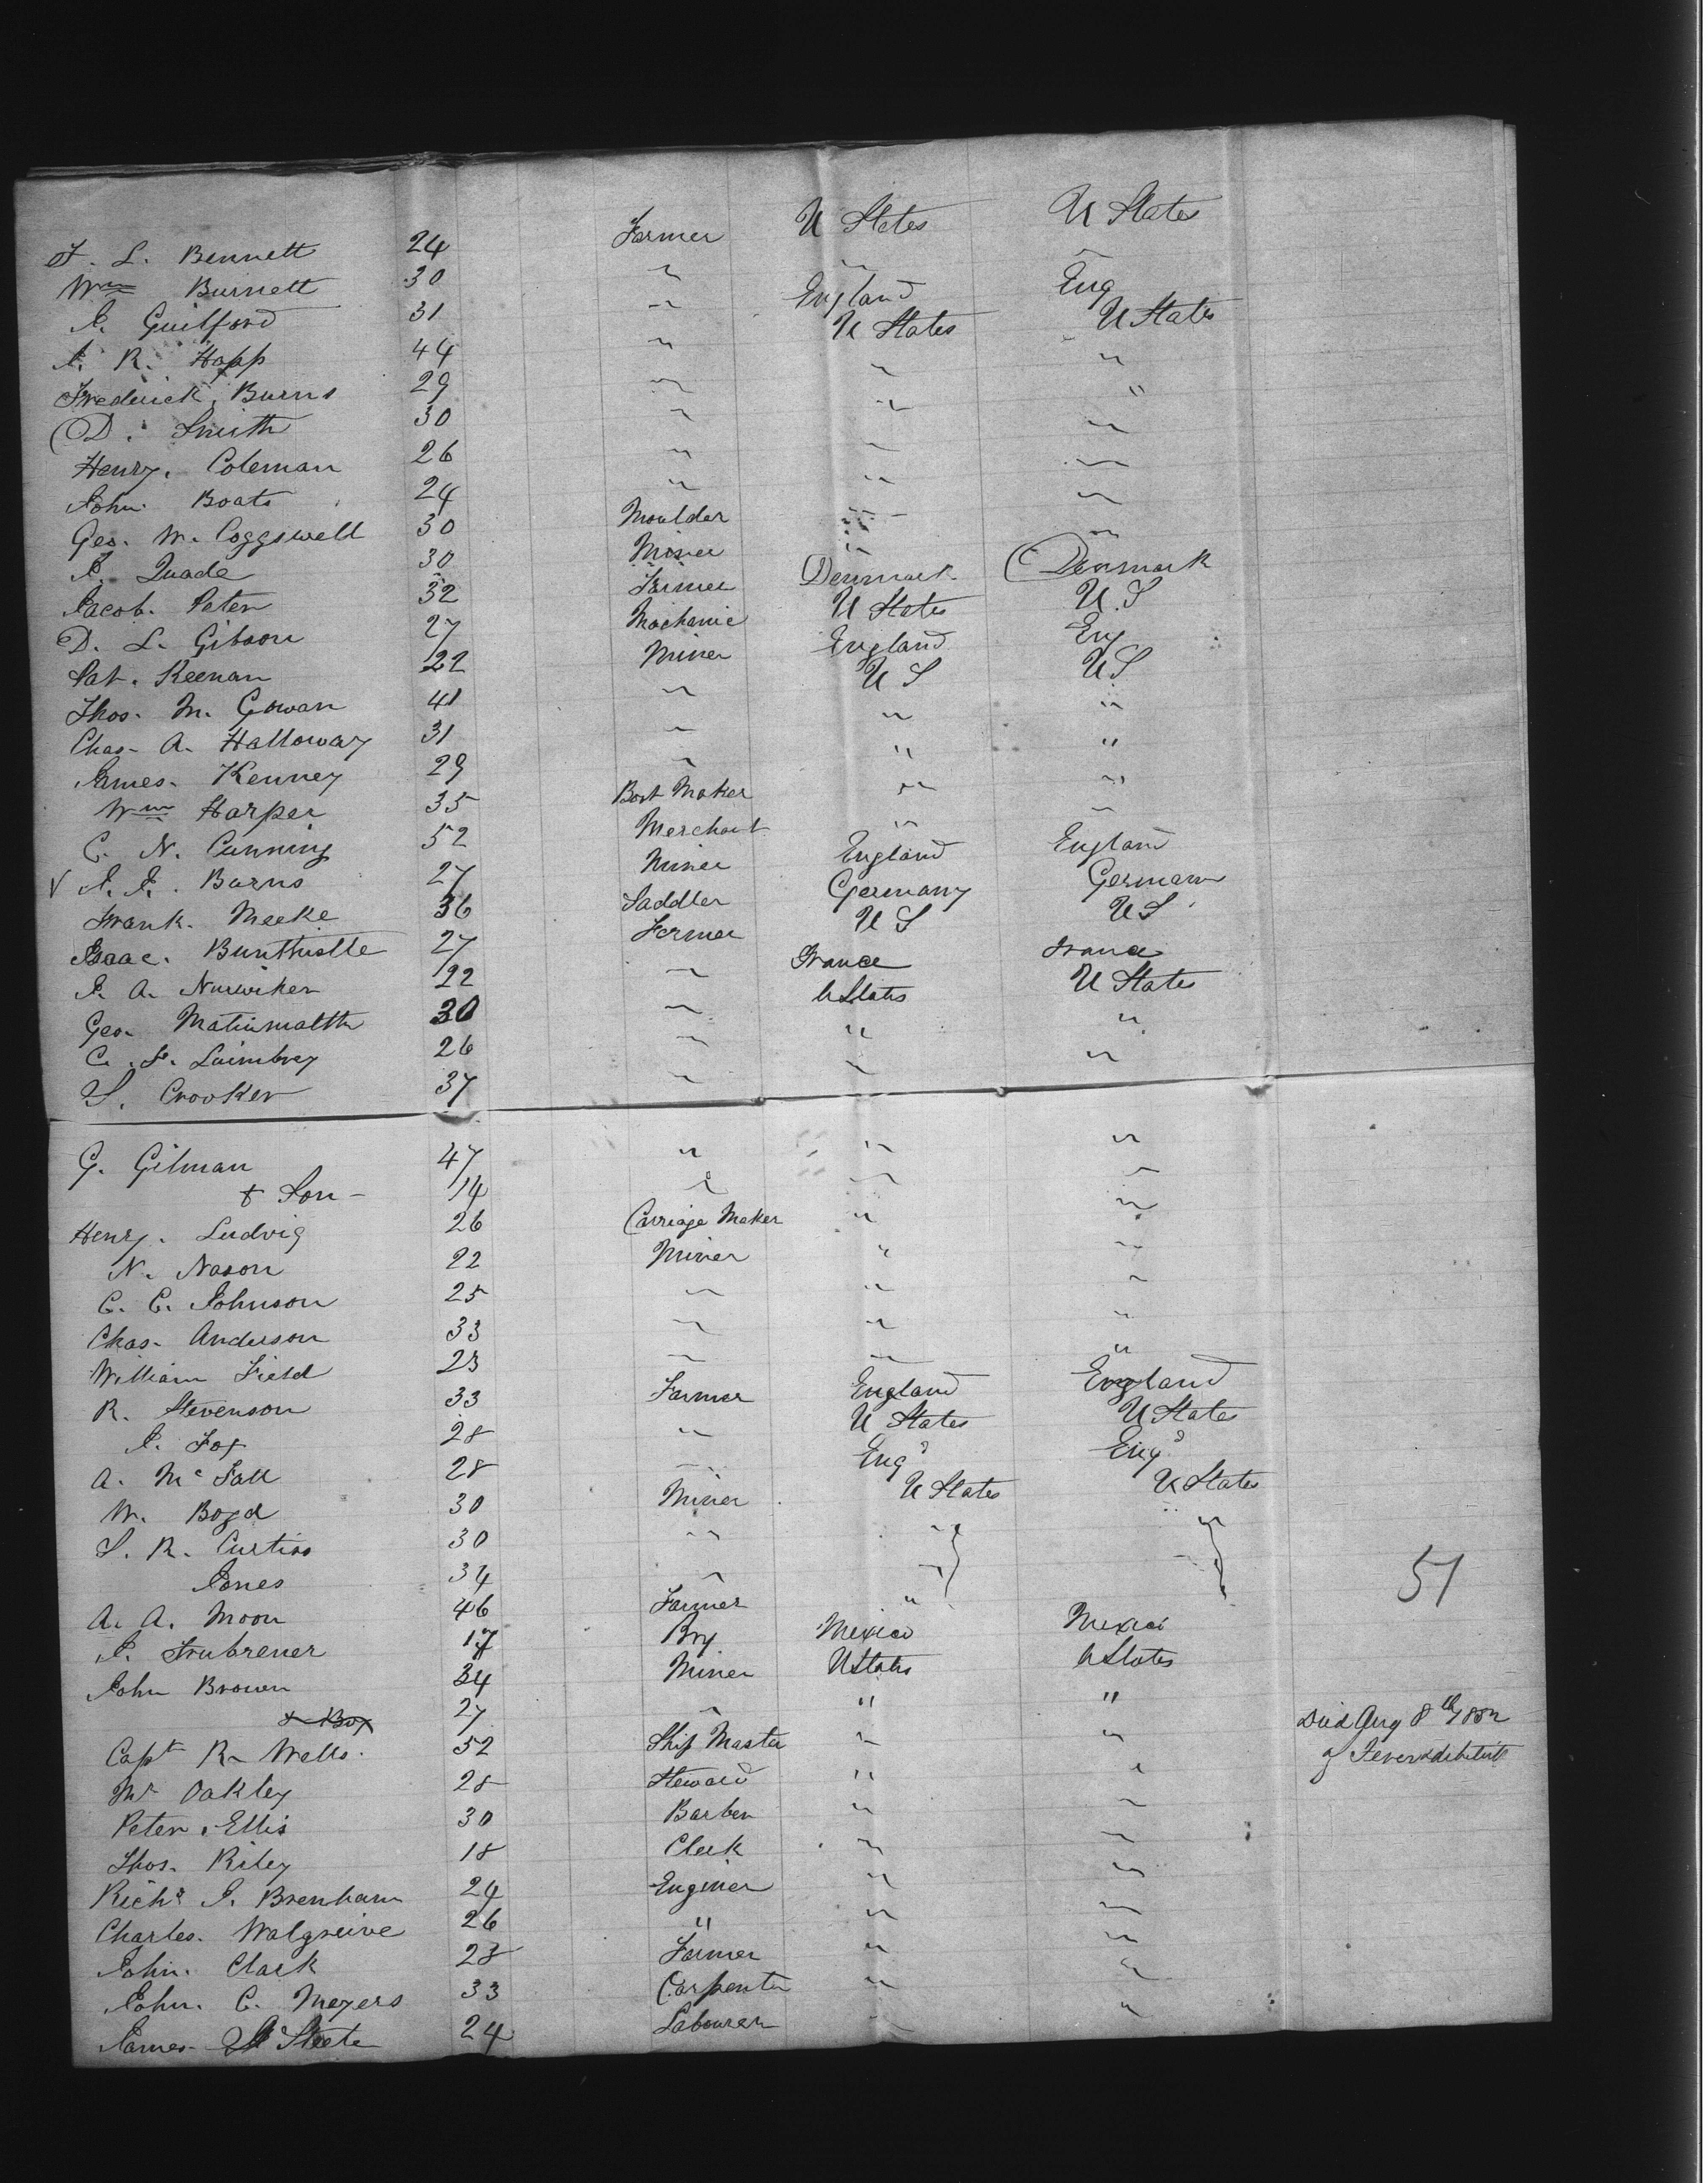 F. L. Bennett 24 Farmer U States U States
Wm Burnett 30 " " "
J. Guilford 31 " England Eng
J. R. Happ 44 " U States U States
Frederick Burns 29 " " "
D. Smith 30 " " "
Henry. Coleman 26 " " "
John Boats 24 " " "
Geo. W. Coggswell 30 Moulder " "
J. Quade 30 Miner " "
Jacob. Peter 32 Farmer Denmark Denmark
D. L. Gibson 27 Mechanic U States U.S
Pat. Keenan 22 Miner England Eng
Thos. M. Gowan 41 " U S U S
Chas. A. Halloway 31 " " "
James. Kenney 29 " " "
Wm Harper 35 Boot Maker " "
C. N. Cunning 52 Merchant " "
√ J. J. Burns 27 Miner England England
Frank. Meeke 36 Saddler Germany German
Isaac. Bunthistle 27 Farmer U S U S
J. A. 22 " France France
Geo. 30 " U States U States
C. F. 26 " " "
S. Crooker 37 " " "
G. Gilman 47 " " "
& Son - 14 " " "
Henry. Ludvig 26 Carriage Maker " "
N. Nason 22 Miner " "
C. C. Johnson 25 " " "
Chas. Anderson 33 " " "
William Field 23 " " "
R. Stevenson 33 Farmer England England
J. Fox 28 " U States U States
A. Mc Fall 28 " Engd Engd
W. Boyd 30 Miner U States U States
S. R. Curtiss 30 " " "
Jones 34 " " "
A. A. Moon 46 Farmer "
J. 17 Boy Mexico Mexico
John Brown 34 Miner U States U States
& Boy 27 " " "
Capt R. Wells. 52 Ship Master " " Died Aug 8th 1852
of Fever & debility
Mr Oakley 28 Steward " "
Peter. Ellis 30 Barber " "
Thos. Riley 18 Clerk " "
Richd J. Brenham 24 Enginer " "
Charles. Walgreive 26 " " "
John. Clark 28 Farmer " "
John. C. Meyers 33 Carpenter " "
James Steete 24 Labourer " "
51